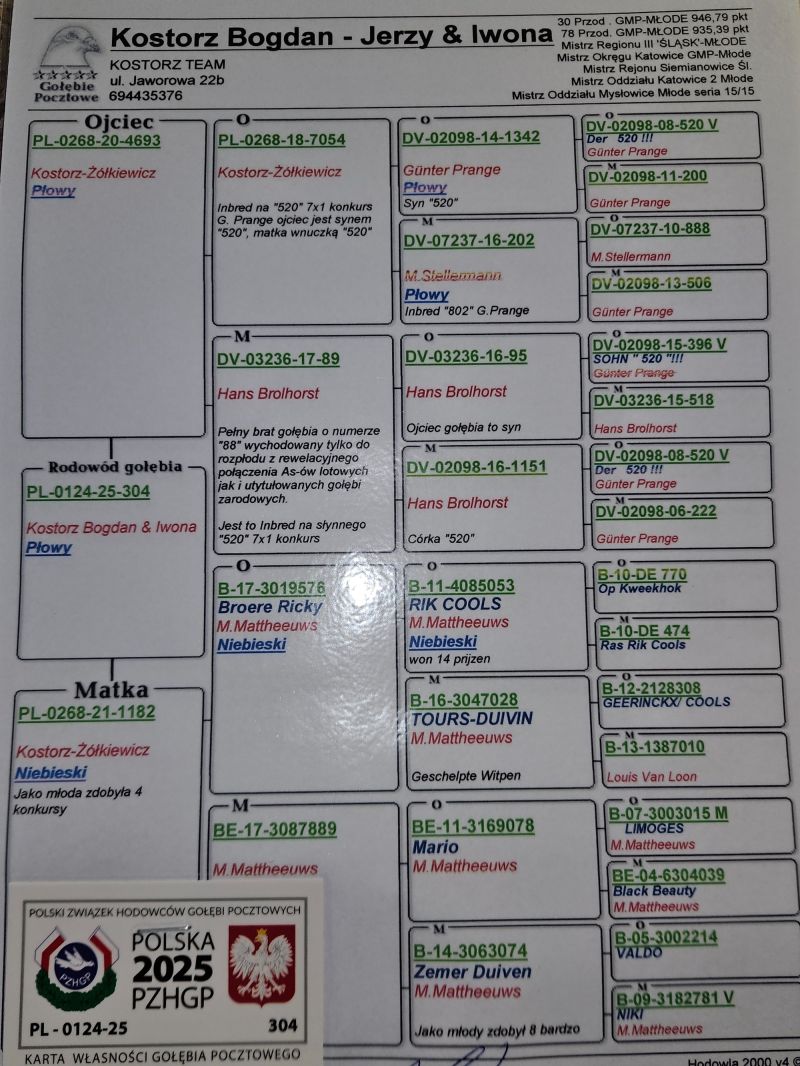 Kostorz Bogdan - Jerzy & Iwona
KOSTORZ TEAM
ul. Jaworowa 22b
694435376
Gołębie
Pocztowe
30 Przod . GMP-MŁODE 946,79 pkt
78 Przod. GMP-MŁODE 935,39 pkt
Mistrz Regionu III 'ŚLĄSK'-MŁODE
Mistrz Okręgu Katowice GMP-Młode
Mistrz Rejonu Siemianowice Śl.
Mistrz Oddziału Katowice 2 Młode
Mistrz Oddziału Mysłowice Młode seria 15/15
Ojciec
PL-0268-20-4693
Kostorz-Żółkiewicz
Płowy
Rodowód gołębia
PL-0124-25-304
Kostorz Bogdan & Iwona
Płowy
Matka
PL-0268-21-1182
Kostorz-Żółkiewicz
Niebieski
Jako młoda zdobyła 4
konkursy
O
PL-0268-18-7054
Kostorz-Żółkiewicz
Inbred na "520" 7x1 konkurs
G. Prange ojciec jest synem
"520", matka wnuczką "520"
M
DV-03236-17-89
Hans Brolhorst
Pełny brat gołębia o numerze
"88" wychodowany tylko do
rozpłodu z rewelacyjnego
połączenia As-ów lotowych
jak i utytułowanych gołębi
zarodowych.
Jest to Inbred na słynnego
"520" 7x1 konkurs
O
B-17-3019576
Broere Ricky
M.Mattheeuws
Niebieski
M
BE-17-3087889
M.Mattheeuws
O
DV-02098-14-1342
Günter Prange
Płowy
Syn "520"
M
DV-07237-16-202
M.Stellermann
Płowy
Inbred "802" G.Prange
O
DV-03236-16-95
Hans Brolhorst
Ojciec gołębia to syn
M
DV-02098-16-1151
Hans Brolhorst
Córka "520"
O
B-11-4085053
RIK COOLS
M.Mattheeuws
Niebieski
won 14 prijzen
M
B-16-3047028
TOURS-DUIVIN
M.Mattheeuws
Geschelpte Witpen
O
BE-11-3169078
Mario
M.Mattheeuws
M
B-14-3063074
Zemer Duiven
M.Mattheeuws
Jako młody zdobył 8 bardzo
O
DV-02098-08-520 V
Der 520 !!!
Günter Prange
M
DV-02098-11-200
Günter Prange
O
DV-07237-10-888
M.Stellermann
M
DV-02098-13-506
Günter Prange
O
DV-02098-15-396 V
SOHN " 520 "!!!
Günter Prange
M
DV-03236-15-518
Hans Brolhorst
O
DV-02098-08-520 V
Der 520 !!!
Günter Prange
M
DV-02098-06-222
Günter Prange
O
B-10-DE 770
Op Kweekhok
M
B-10-DE 474
Ras Rik Cools
O
B-12-2128308
GEERINCKX/ COOLS
M
B-13-1387010
Louis Van Loon
O
B-07-3003015 M
LIMOGES
M.Mattheeuws
M
BE-04-6304039
Black Beauty
M.Mattheeuws
O
B-05-3002214
VALDO
M
B-09-3182781 V
NIKI
M.Mattheeuws
Hodowla 2000 v4 ©
POLSKI ZWIĄZEK HODOWCÓW GOŁĘBI POCZTOWYCH
PZHGP
POLSKA
2025
PZHGP
PL - 0124-25
304
KARTA WŁASNOŚCI GOŁĘBIA POCZTOWEGO